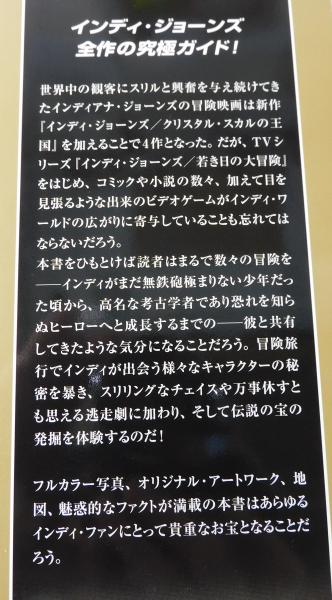 インディ・ジョーンズ
全作の究極ガイド!
世界中の観客にスリルと興奮を与え続けてき
たインディアナ・ジョーンズの冒険映画は新作
『インディ・ジョーンズ／クリスタル・スカルの王
国』を加えることで4作となった。だが、TVシ
リーズ『インディ・ジョーンズ／若き日の大冒険』
をはじめ、コミックや小説の数々、加えて目を
見張るような出来のビデオゲームがインディ・ワ
ールドの広がりに寄与していることも忘れては
ならないだろう。
本書をひもとけば読者はまるで数々の冒険を
──インディがまだ無鉄砲極まりない少年だっ
た頃から、高名な考古学者であり恐れを知ら
ぬヒーローへと成長するまでの──彼と共有
してきたような気分になることだろう。冒険旅
行でインディが出会う様々なキャラクターの秘
密を暴き、スリリングなチェイスや万事休すと
も思える逃走劇に加わり、そして伝説の宝の
発掘を体験するのだ!
フルカラー写真、オリジナル・アートワーク、地
図、魅惑的なファクトが満載の本書はあらゆる
インディ・ファンにとって貴重なお宝となることだ
ろう。